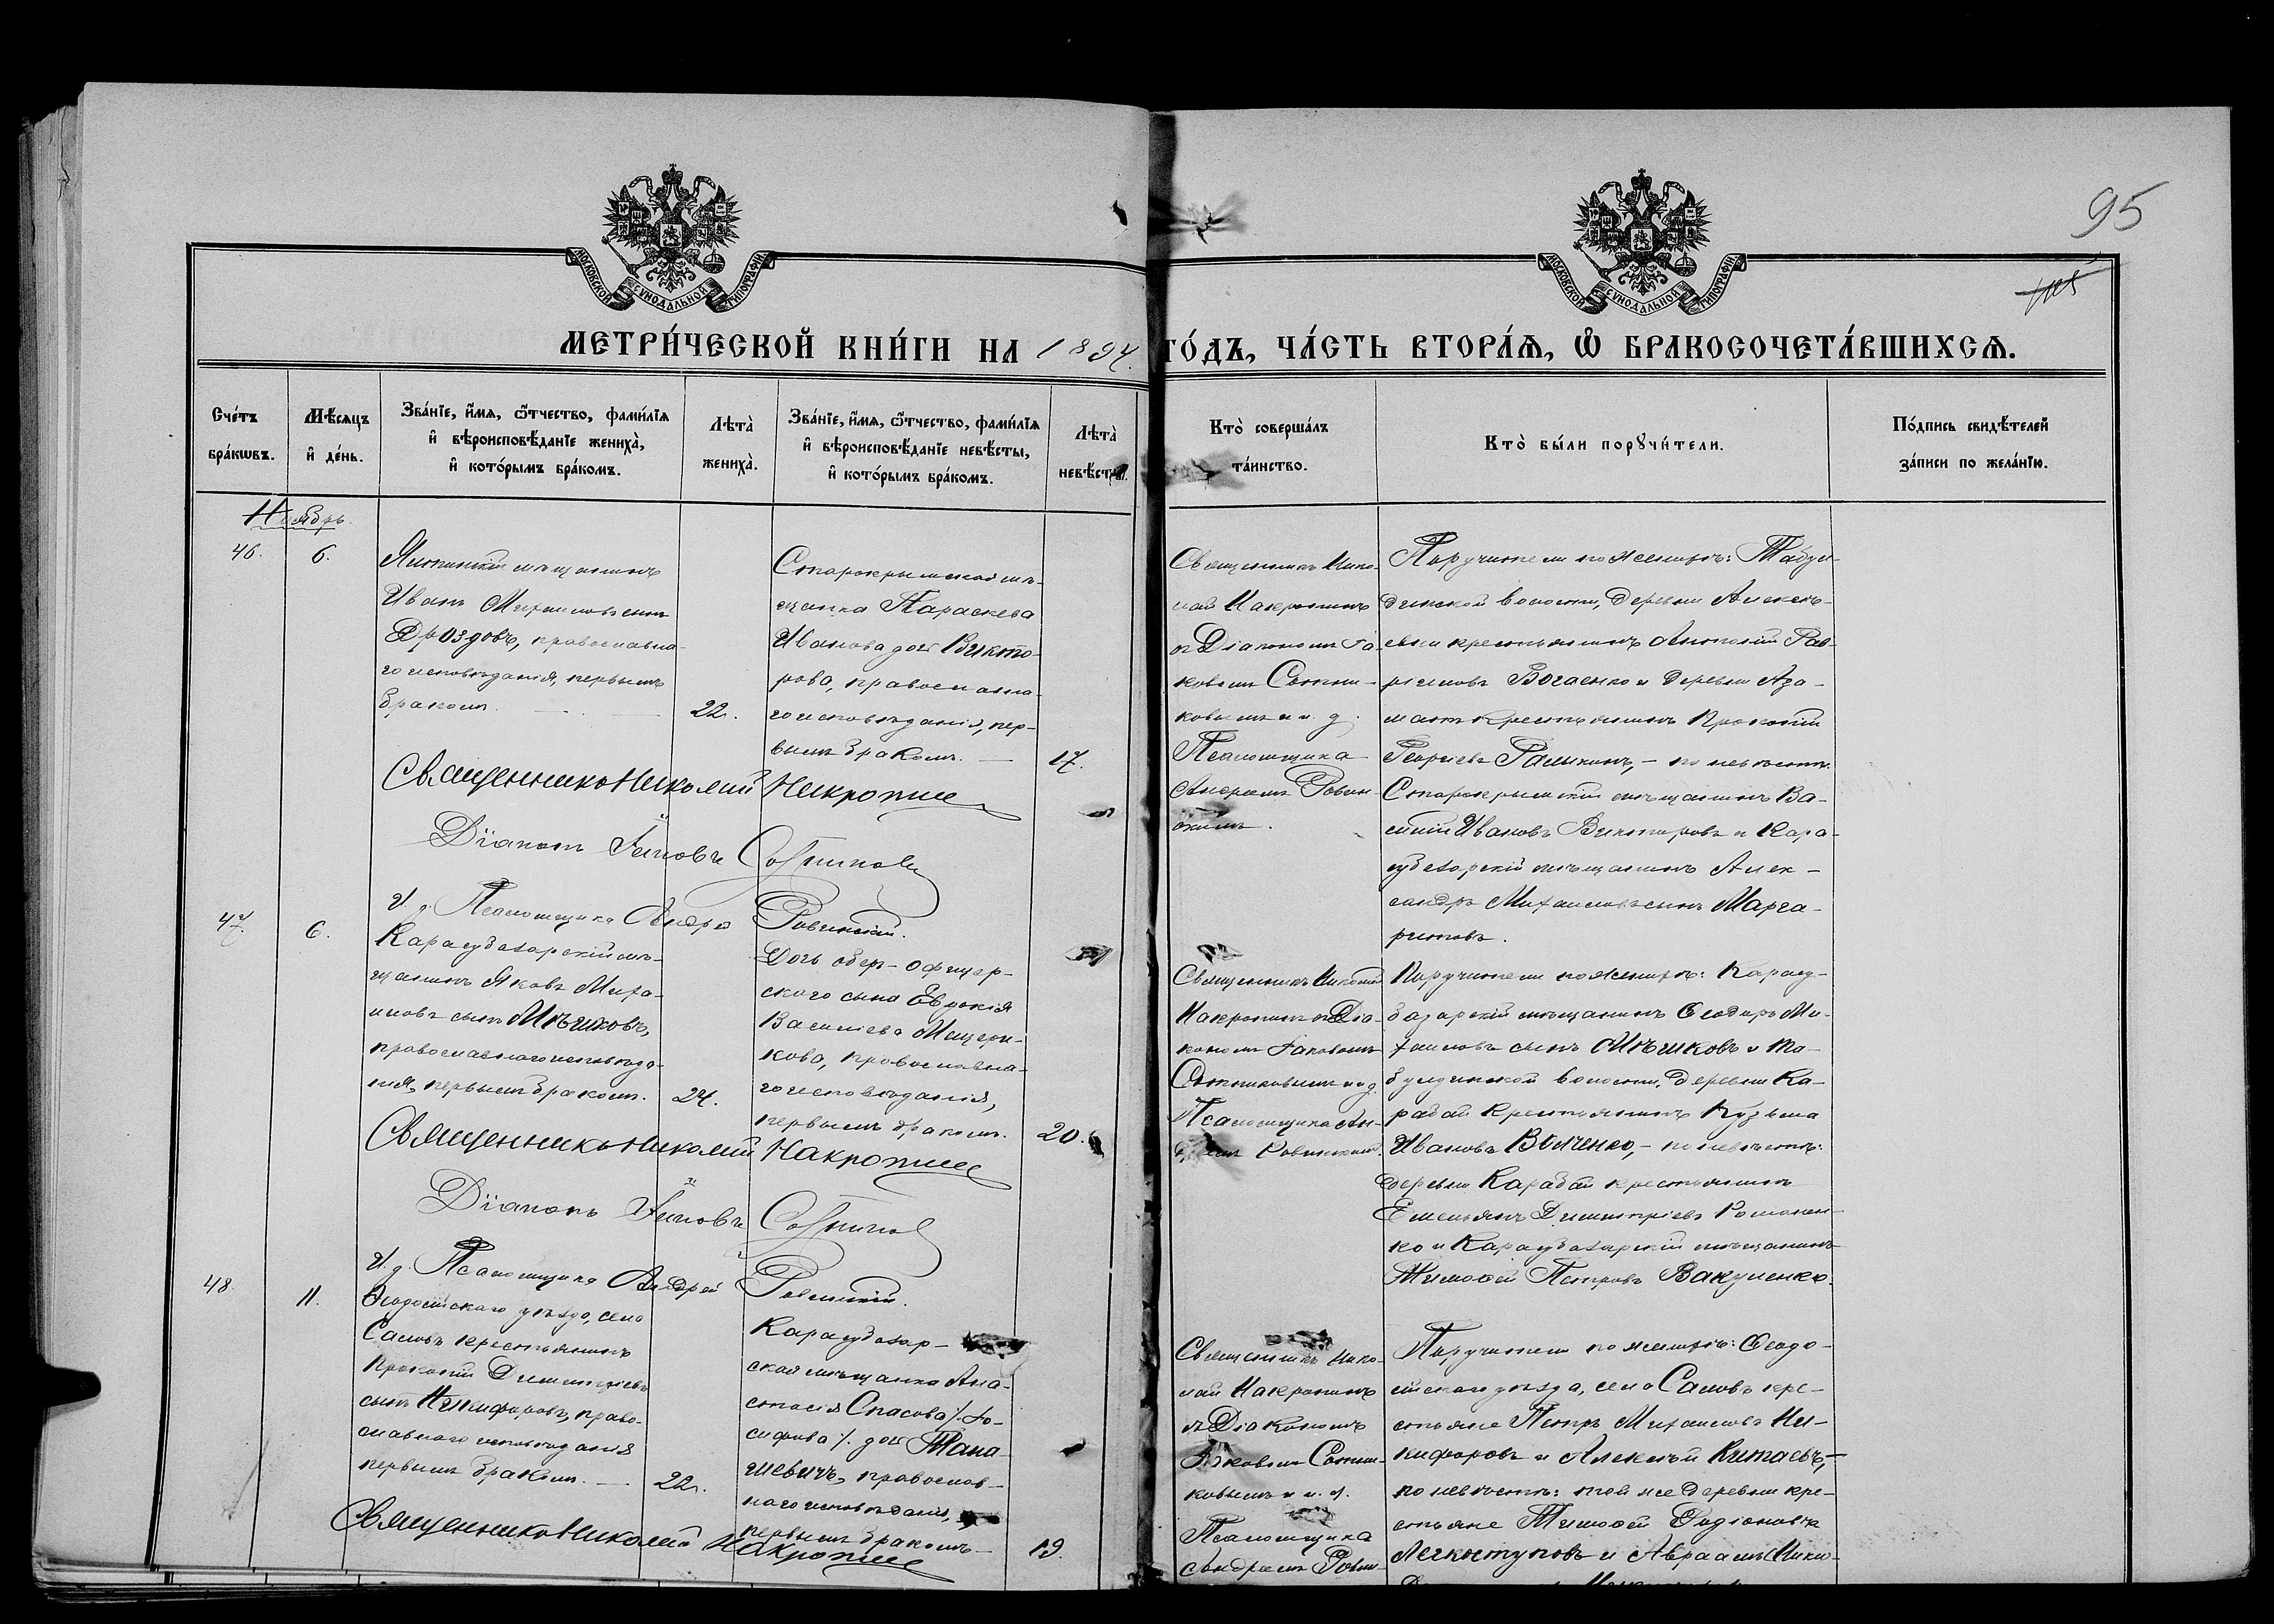 95
МОСКОВСКОЙ СУНОДАЛЬНОЙ ТИПОГРАФІИ
МОСКОВСКОЙ СУНОДАЛЬНОЙ ТИПОГРАФІИ
МЕТРИ́ЧЕСКОЙ КНИ́ГИ НА 1894. ГО́ДЪ, ЧА́СТЬ ВТОРА́Ѧ, Ѡ҆ БРАКОСОЧЕТА́ВШИХСѦ.
Сче́тъ бра́кѡвъ.
Мѣ́сѧцъ и҆ де́нь.
Зва́нїе, и҆́мѧ, ѻ҆́тчество, фами́лїѧ
и҆ вѣроисповѣ́данїе жениха̀,
и҆ кото́рымъ бра́комъ.
Лѣта̀ жениха̀.
Зва́нїе, и҆́мѧ, ѻ҆́тчество, фами́лїѧ
и҆ вѣроисповѣ́данїе невѣ́сты,
и҆ кото́рымъ бра́комъ.
Лѣта̀ невѣ́сты.
Кто̀ соверша́лъ
та́инство.
Кто̀ бы́ли порꙋчи́тели.
По́дпись свидѣ́телей
за́писи по жела́нїю.
Ноябрь.
46.
6.
мѣщанинъ
Иванъ Михаиловъ сынъ
Дроздовъ, православна-
го исповѣданія, первымъ
бракомъ.
22.
Старокрымская мѣ-
щанка Параскева
Иванова дочь Викто-
рова, православна-
го исповѣданія, пер-
вымъ бракомъ.
17.
Священникъ Нико-
лай Накропинъ
съ Діакономъ Іа-
ковомъ Сотни-
ковымъ и и. д.
Псаломщика
Андреемъ Ровин-
скимъ.
Поручители по женихѣ: Табул-
динской волости, деревни Алексѣ-
евки крестьянинъ Анатолій Гав-
риловъ и деревни Аза-
матъ крестьянинъ Прокопій
Георгіевъ Галыкинъ, - по невѣстѣ:
Старокрымскій мѣщанинъ Ва-
силій Иванов Викторовъ и Кара-
субазарскій мѣщанинъ Алек-
сандръ Михаиловъ сынъ Марга-
ритовъ.
Священникъ Николай Накропин
Діаконъ Іаковъ Сотников
И. д. Псаломщика Андрей Ровинскій.
47.
6.
Карасубазарскій мѣ-
щанинъ Яковъ Миха-
иловъ сынъ Мѣшковъ,
православнаго исповѣда-
нія, первымъ бракомъ.
24.
Дочь обер-офицер-
скаго сына Евдокія
Василіева Мещеря-
кова, православна-
го исповѣданія,
первымъ бракомъ.
20.
Священникъ Николай
Накропинъ съ Діа-
кономъ Іаковомъ
Сотниковымъ и и. д.
Псаломщика Ан-
дреемъ Ровинскимъ.
Поручители по женихѣ: Карасу-
базарскій мѣщанинъ Ѳеодоръ Ми-
хаиловъ сынъ Мѣшковъ и Та-
булдинской волости, деревни Ка-
рабай крестьянинъ Кузьма
Ивановъ Волченко, - по невѣстѣ:
деревни Карабай крестьянинъ
Емельянъ Димитріевъ Романен-
ко и Карасубазарскій мѣщанинъ
Тимоѳей Петровъ Вакуленко.
Священникъ Николай Накропин
Діаконъ Іаковъ Сотников
И. д. Псаломщика Андрей Ровинскій.
48.
11.
Ѳеодосійскаго уѣзда, села
Саловъ крестьянинъ
Прокопій Димитріевъ
сынъ Никифоровъ, право-
славнаго исповѣданія
первымъ бракомъ.
22.
Карасубазар-
ская мѣщанка Ана-
стасія Спасова /: Іо-
сифова :/ дочь Тана-
шевичъ, православ-
наго исповѣданія,
первымъ бракомъ
19.
Священникъ Нико-
лай Накропинъ
съ Діакономъ
Іаковомъ Сотни-
ковымъ и и. д.
Псаломщика
Андреемъ Ровин-
Поручители по женихѣ: Ѳеодо-
сійскаго уѣзда, села Саловъ кре-
стьяне Петръ Михаиловъ Ни-
кифоровъ и Алексѣй Китаевъ,-
по невѣстѣ: той же деревни кре-
стьяне Тимоѳей Родіоновъ
Легкоступовъ и Авраамъ Нико-
Священникъ Николай Накропин